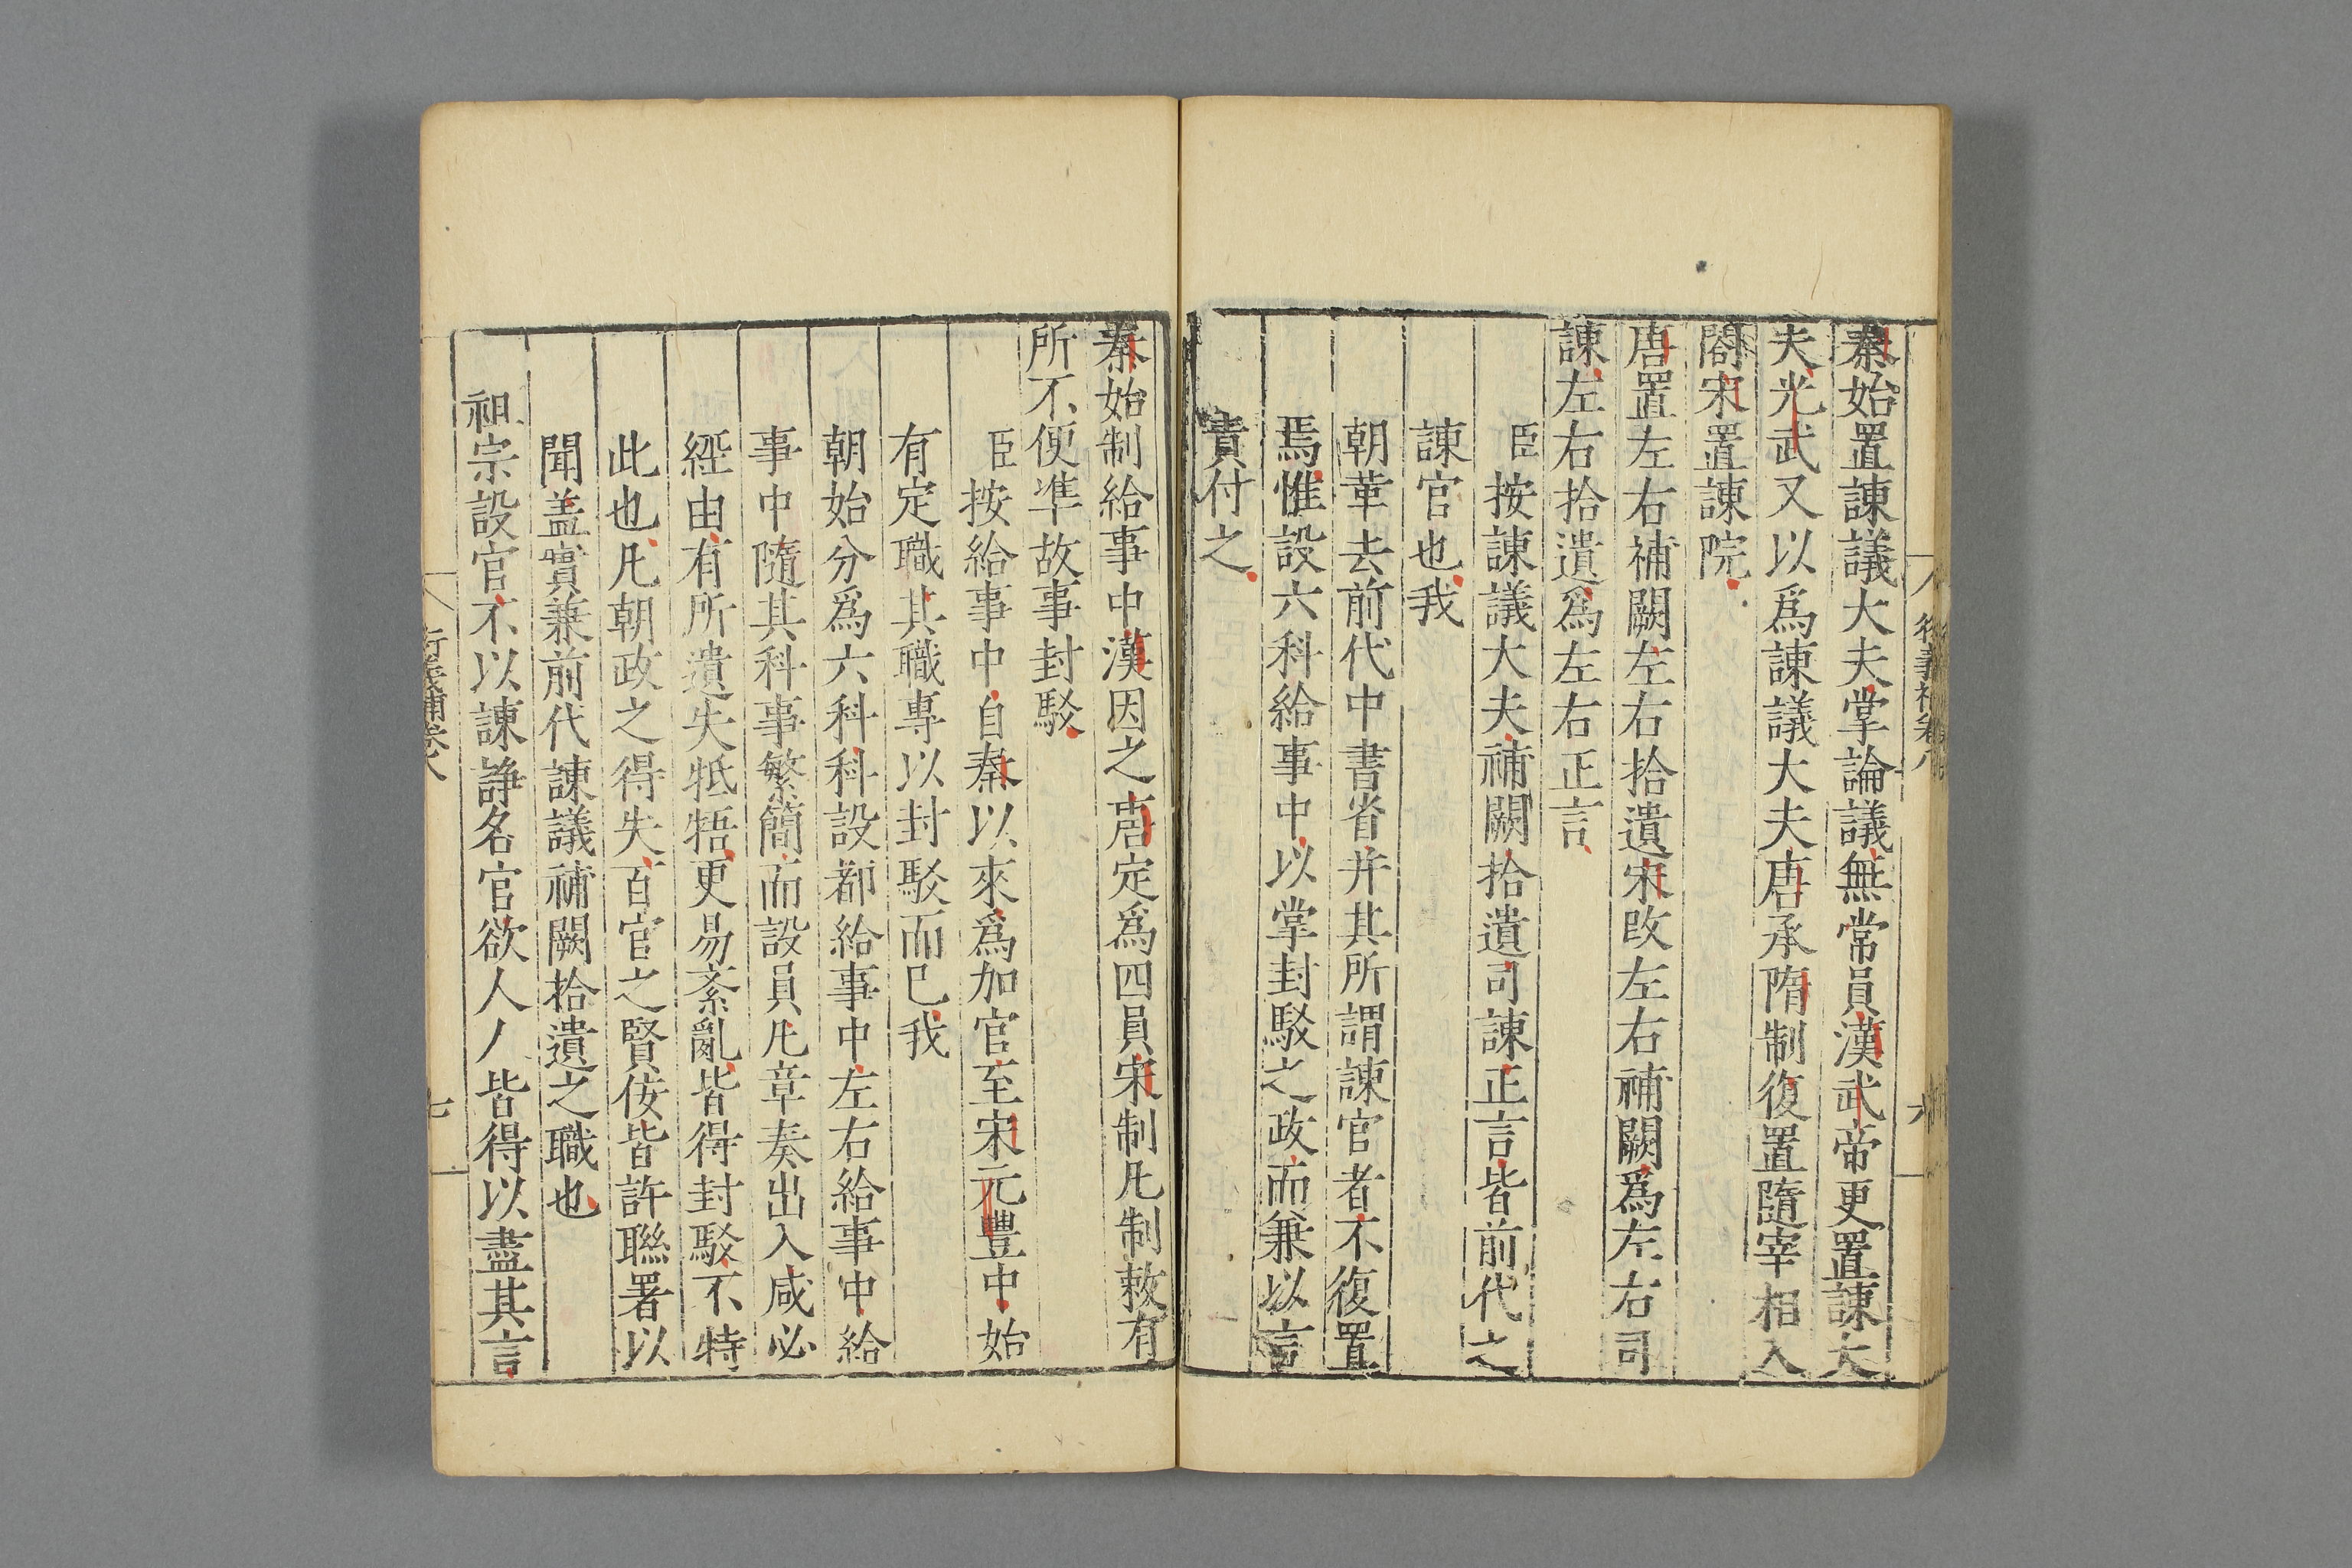 秦始置諫議大夫掌論議無常員漢武帝更置諫大
夫光武又以爲諫議大夫唐承隋制復置隨宰相入
閤宋置諫院
唐置左右補闕左右拾遺宋改左右補闕爲左右司
諫左右拾遺爲左右正言
臣按諫議大夫補闕拾遺司諫正言皆前代之
諫官也我
朝革去前代中書省并其所謂諫官者不復置
焉惟設六科給事中以掌封駁之政而兼以言
責付之
秦始制給事中漢因之唐定爲四員宋制凡制敕有
所不便準故事封駁
臣按給事中自秦以來爲加官至宋元豐中始
有定職其職專以封駁而已我
朝始分爲六科科設都給事中左右給事中給
事中隨其科事繁簡而設員凡章奏出入咸必
經由有所遺失牴牾更易紊亂皆得封駁不特
此也凡朝政之得失百官之賢佞皆許聯署以
聞盖實兼前代諫議補闕拾遺之職也
祖宗設官不以諫諍名官欲人人皆得以盡其言
衍義補卷八
七